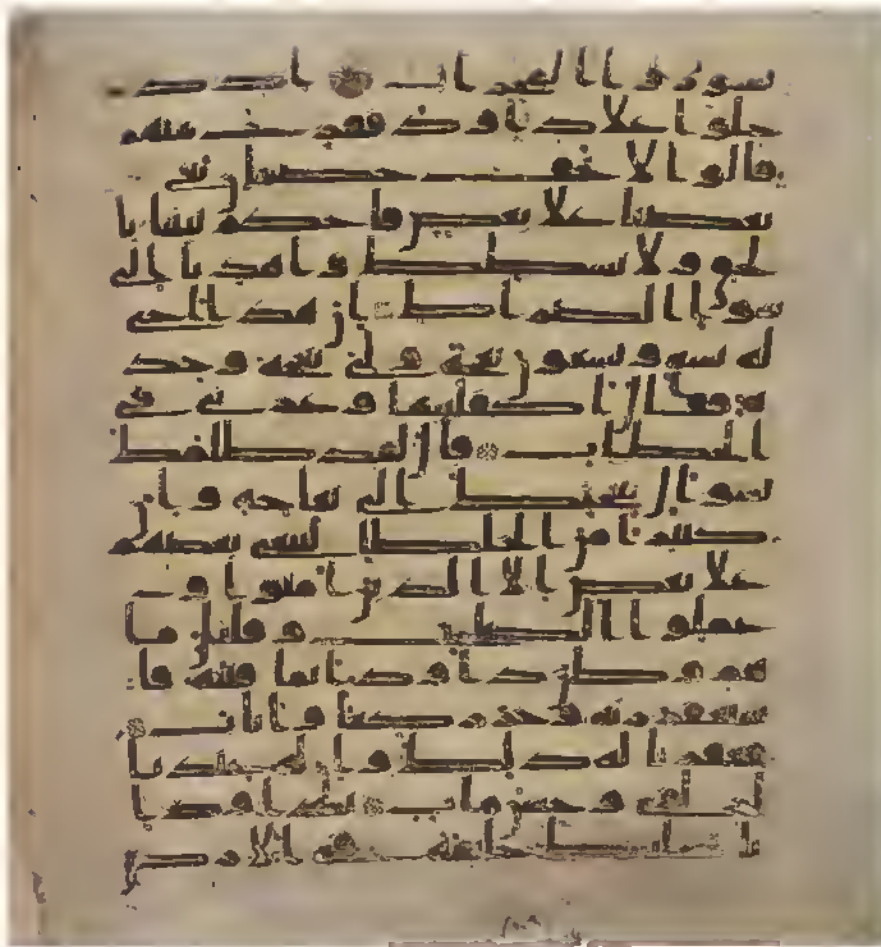 تسوروا المحراب اذ د
خلوا على داود ففزع منهم
قالوا لا تخف خصمان بغى
بعضنا على بعض فاحكم بيننا با
لحق ولا تشطط واهدنا الى
سوا الصراط ان هذا اخي
له تسع وتسعون نعجة ولي نعجة وحد
ة فقال اكفلنيها وعزني في
الخطاب قال لقد ظلمك
بسوال نعجتك الى نعاجه وان
كثيرا من الخلطا ليبغي بعضهم
على بعض الا الذين امنوا و
عملوا الصلحت وقليل ما
هم وظن داود انما فتنه فا
ستغفر ربه وخر راكعا واناب
فغفرنا له ذلك وان له عندنا
لزلفى وحسن ماب يداود ا
نا جعلنك خليفة في الارض